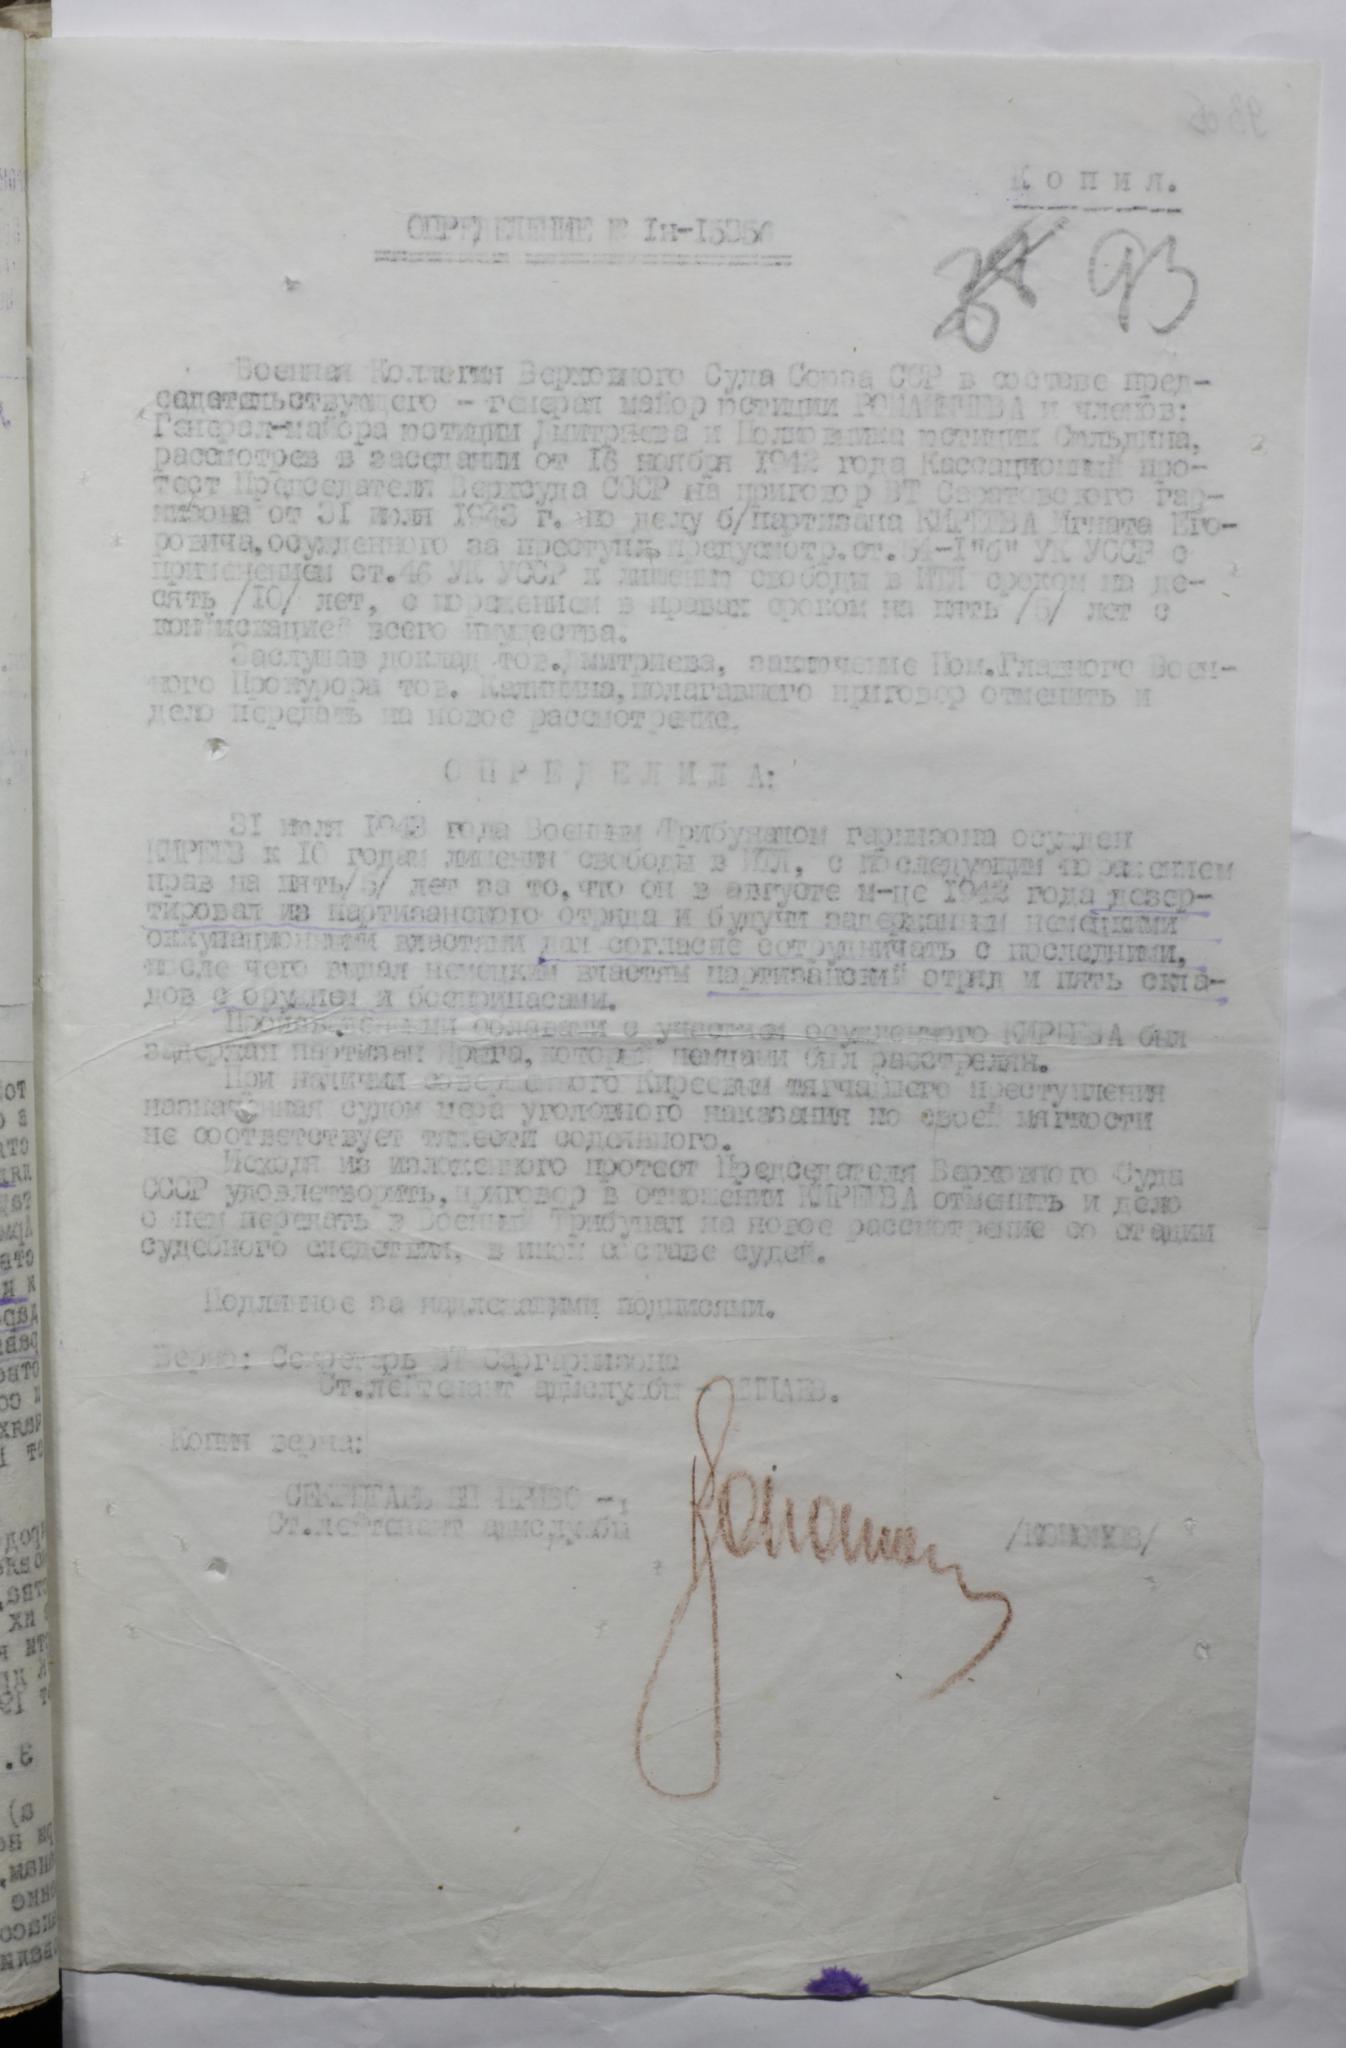 Копия.
ОПРЕДЕЛЕНИЕ № Iн-
93
Военная Коллегия Верховного Суда Союза ССР в составе пред-
седательствующего - генерал майор юстиции РОМАНЫЧЕВА и членов:
Генерал-майора юстиции Дмитриева и Полковника юстиции Сюльдина,
рассмотрев в заседании от 16 ноября 1942 года Кассационный про-
тест Председателя Верхсуда СССР на приговор ВТ Саратовского гар-
низона от 31 июля 1943 г. по делу б/партизана КИРЕЕВА Игната Его-
ровича, осужденного за преступл. предусмотр.ст. 54-I"б" УК УССР с
применением ст.46 УК УССР к лишению свободы в ИТЛ сроком на де-
сять /10/ лет, с поражением в правах сроком на пять /5/ лет с
конфискацией всего имущества.
Заслушав доклад тов.Дмитриева, заключение Пом.Главного Воен-
ного Прокурора тов. Калинина,полагавшего приговор отменить и
дело передать на новое рассмотрение.
ОПРЕДЕЛИЛА:
31 июля 1943 года Военным Трибуналом гарнизона осужден
КИРЕЕВ к 10 годам лишения свободы в ИТЛ, с последующим поражением
прав на пять/5/ лет за то,что он в августе м-це 1942 года дезер-
тировал из партизанского отряда и будучи задержанным немецкими
оккупационными властями дал согласие сотрудничать с последними,
после чего выдал немецким властям партизанский отряд и пять скла-
дов с оружием и боеприпасами.
Произведенными облавами с участием осужденного КИРЕЕВА был
задержан партизан Ярыга,который немцами был расстрелян.
При наличии совершенного Киреевым тягчайшего преступления
назначенная судом мера уголовного наказания по своей мягкости
не соответствует тяжести содеянного.
Исходя из изложенного протест Председателя Верховного Суда
СССР удовлетворить,приговор в отношении КИРЕЕВА отменить и дело
о нем передать в Военный Трибунал на новое рассмотрение со стадии
судебного следствия, в ином составе судей.
Подлинное за надлежащими подписями.
Верно: Секретарь ВТ Саргарнизона
Ст.лейтенант адмслужбы -
Копия верна:
СЕКРЕТАРЬ ВТ ПРИВО -
Ст.лейтенант адмслужбы